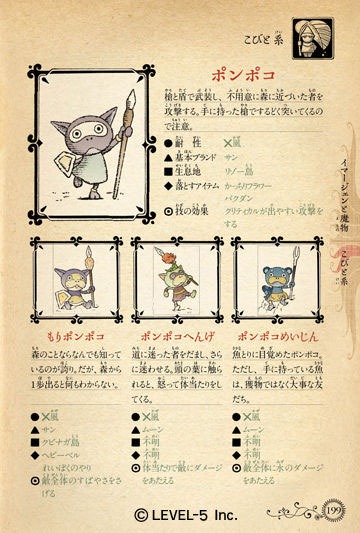 こびと系
ポンポコ
槍と盾で武装し、不用意に森に近づいた者を
攻撃する。手に持った槍でするどく突いてくるの
で注意。
● 耐性 ×風
▲ 基本ブランド サン
■ 生息地 リゾー島
◆ 落とすアイテム かっちりフラワー
バクダン
◎ 技の効果 クリティカルが出やすい攻撃を
する
イマージェンと魔物
こびと系
もりポンポコ
森のことならなんでも知って
いるのが誇り。だが、森から
1歩出ると何もわからない。
●×風
▲サン
■クビナガ島
◆ヘビーベル
れいぼくのやり
◎敵全体のすばやさをさ
げる
ポンポコへんげ
道に迷った者をだまし、さら
に迷わせる。頭の葉に触ら
れると、怒って体当たりをし
てくる。
●×風
▲ムーン
■不明
◆不明
◎体当たりで敵にダメージ
をあたえる
ポンポコめいじん
魚とりに目覚めたポンポコ。
ただし、手に持っている魚
は、獲物ではなく大事な友
だち。
●×風
▲ムーン
■不明
◆不明
◎敵全体に水のダメージ
をあたえる
199
© LEVEL-5 Inc.